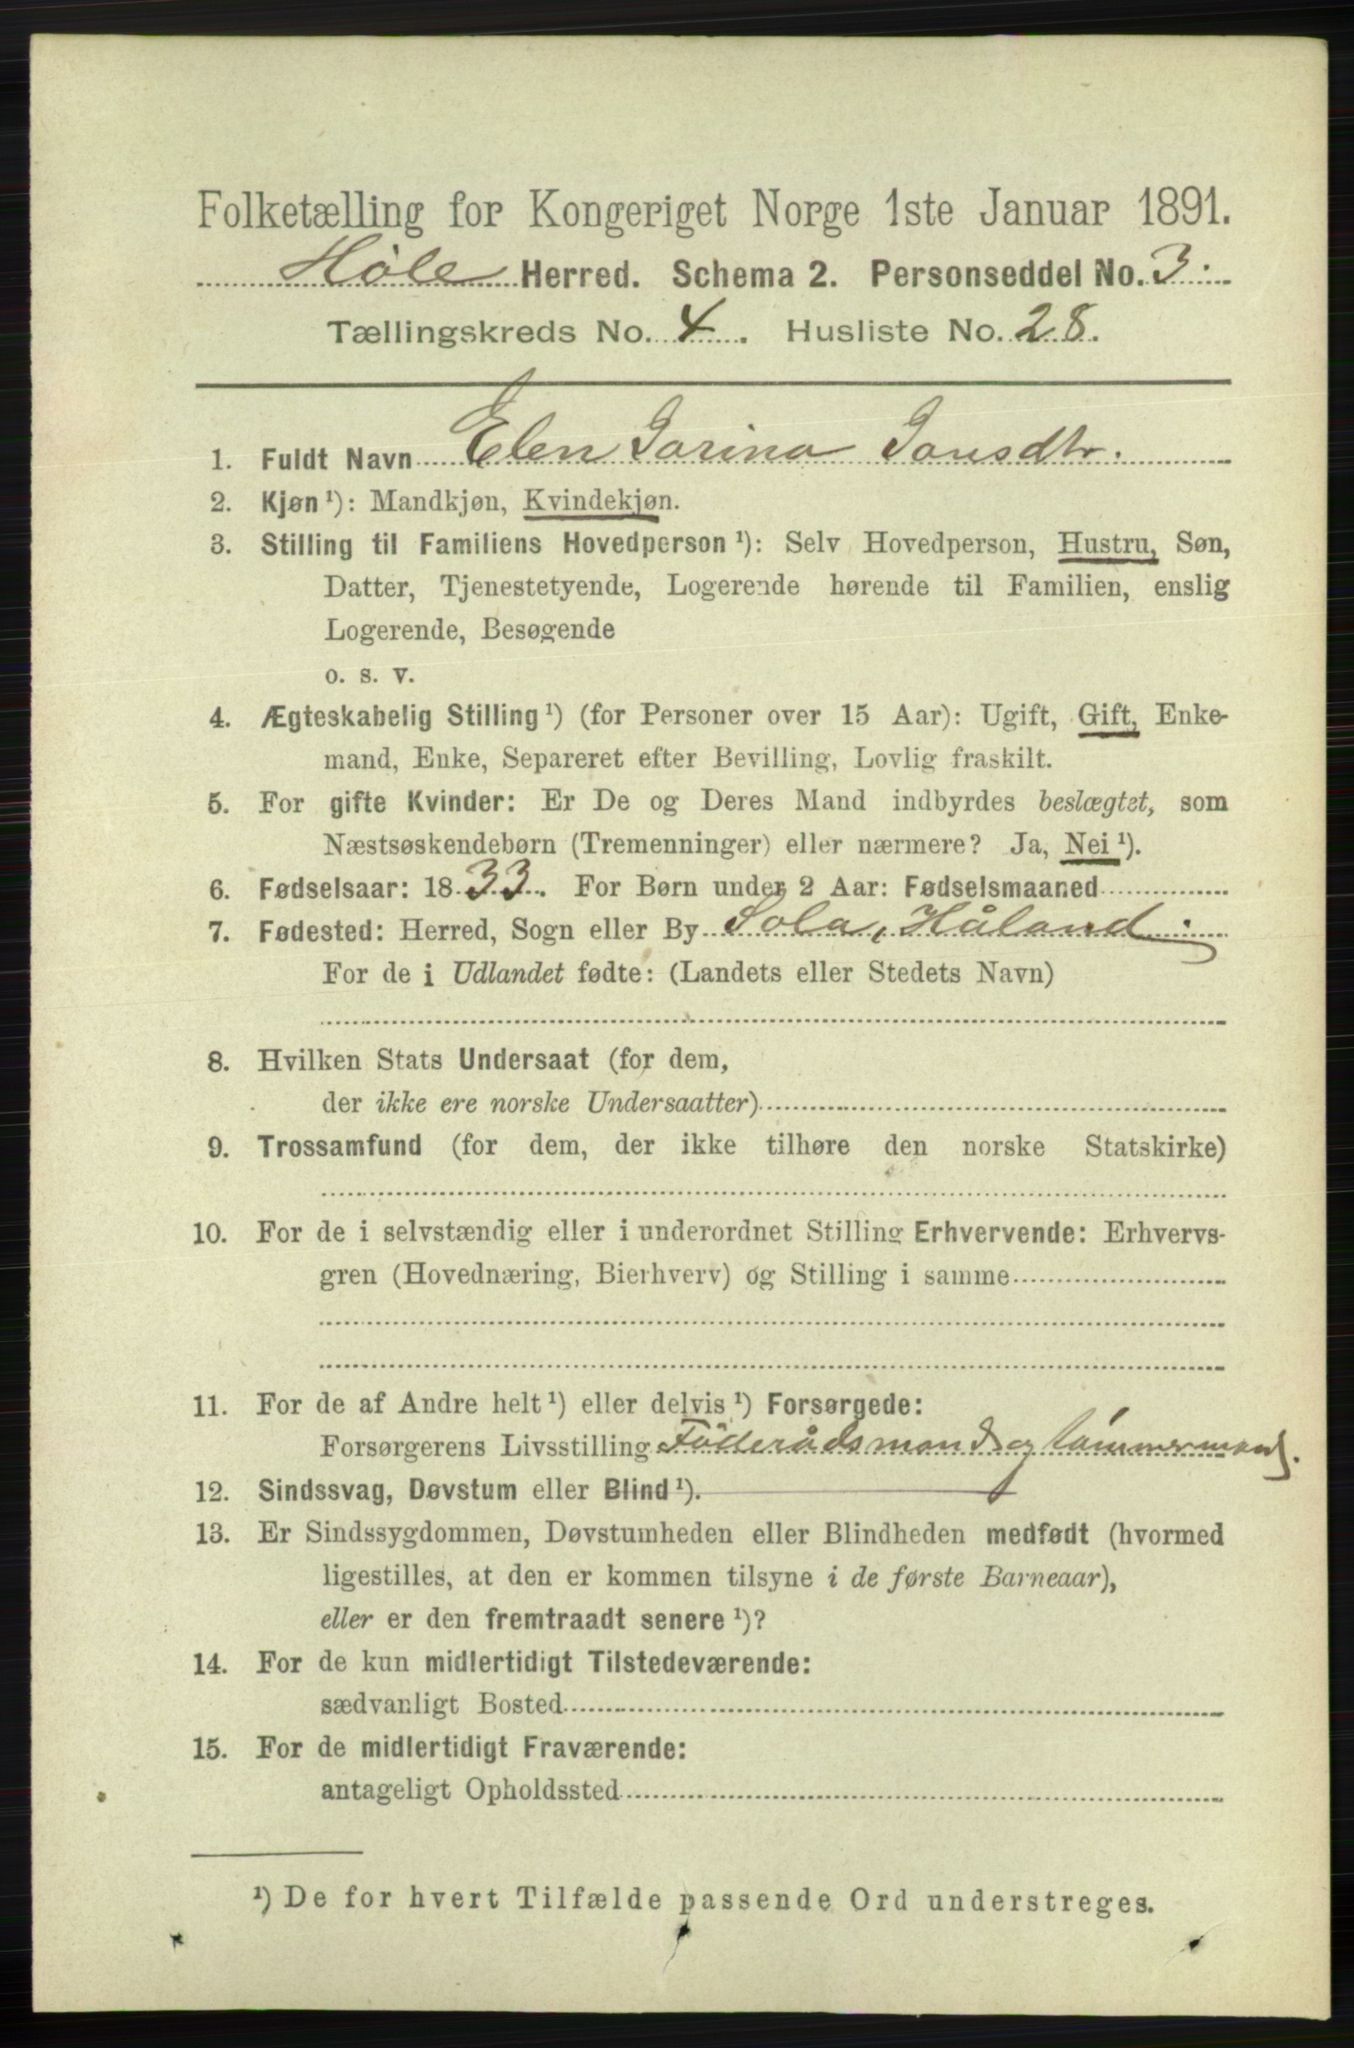 Folketælling for Kongeriget Norge 1ste Januar 1891.
Høle Herred. Schema 2. Personseddel No. 3.
Tællingskreds No. 4. Husliste No. 28.
1. Fuldt Navn Elen Sarina Jonsdtr.
2. Kjøn¹): Mandkjøn, Kvindekjøn.
3. Stilling til Familiens Hovedperson¹): Selv Hovedperson, Hustru, Søn,
Datter, Tjenestetyende, Logerende hørende til Familien, enslig
Logerende, Besøgende
o. s. v.
4. Ægteskabelig Stilling¹) (for Personer over 15 Aar): Ugift, Gift, Enke-
mand, Enke, Separeret efter Bevilling, Lovlig fraskilt.
5. For gifte Kvinder: Er De og Deres Mand indbyrdes beslægtet, som
Næstsøskendebørn (Tremenninger) eller nærmere? Ja, Nei¹).
6. Fødselsaar: 1833. For Børn under 2 Aar: Fødselsmaaned
7. Fødested: Herred, Sogn eller By Sola, Håland
For de i Udlandet fødte: (Landets eller Stedets Navn)
8. Hvilken Stats Undersaat (for dem,
der ikke ere norske Undersaatter)
9. Trossamfund (for dem, der ikke tilhøre den norske Statskirke)
10. For de i selvstændig eller i underordnet Stilling Erhvervende: Erhvervs-
gren (Hovednæring, Bierhverv) og Stilling i samme
11. For de af Andre helt¹) eller delvis¹) Forsørgede:
Forsørgerens Livsstilling Föderådsmand og tømmermand.
12. Sindssvag, Døvstum eller Blind¹).
13. Er Sindssygdommen, Døvstumheden eller Blindheden medfødt (hvormed
ligestilles, at den er kommen tilsyne i de første Barneaar),
eller er den fremtraadt senere¹)?
14. For de kun midlertidigt Tilstedeværende:
sædvanligt Bosted
15. For de midlertidigt Fraværende:
antageligt Opholdssted
¹) De for hvert Tilfælde passende Ord understreges.